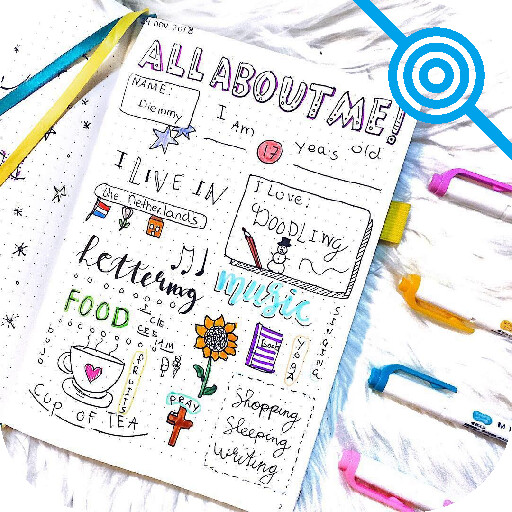 NOV 2018
ALL ABOUT ME!
NAME:
Diemmy
I Am 17 years old
I LIVE IN
the Netherlands
I Love:
DOODLING
lettering
music
FOOD
ICE
Book
YOGA
SINGING
FRUITS
CUP OF TEA
PRAY
Shopping
Sleeping
writing